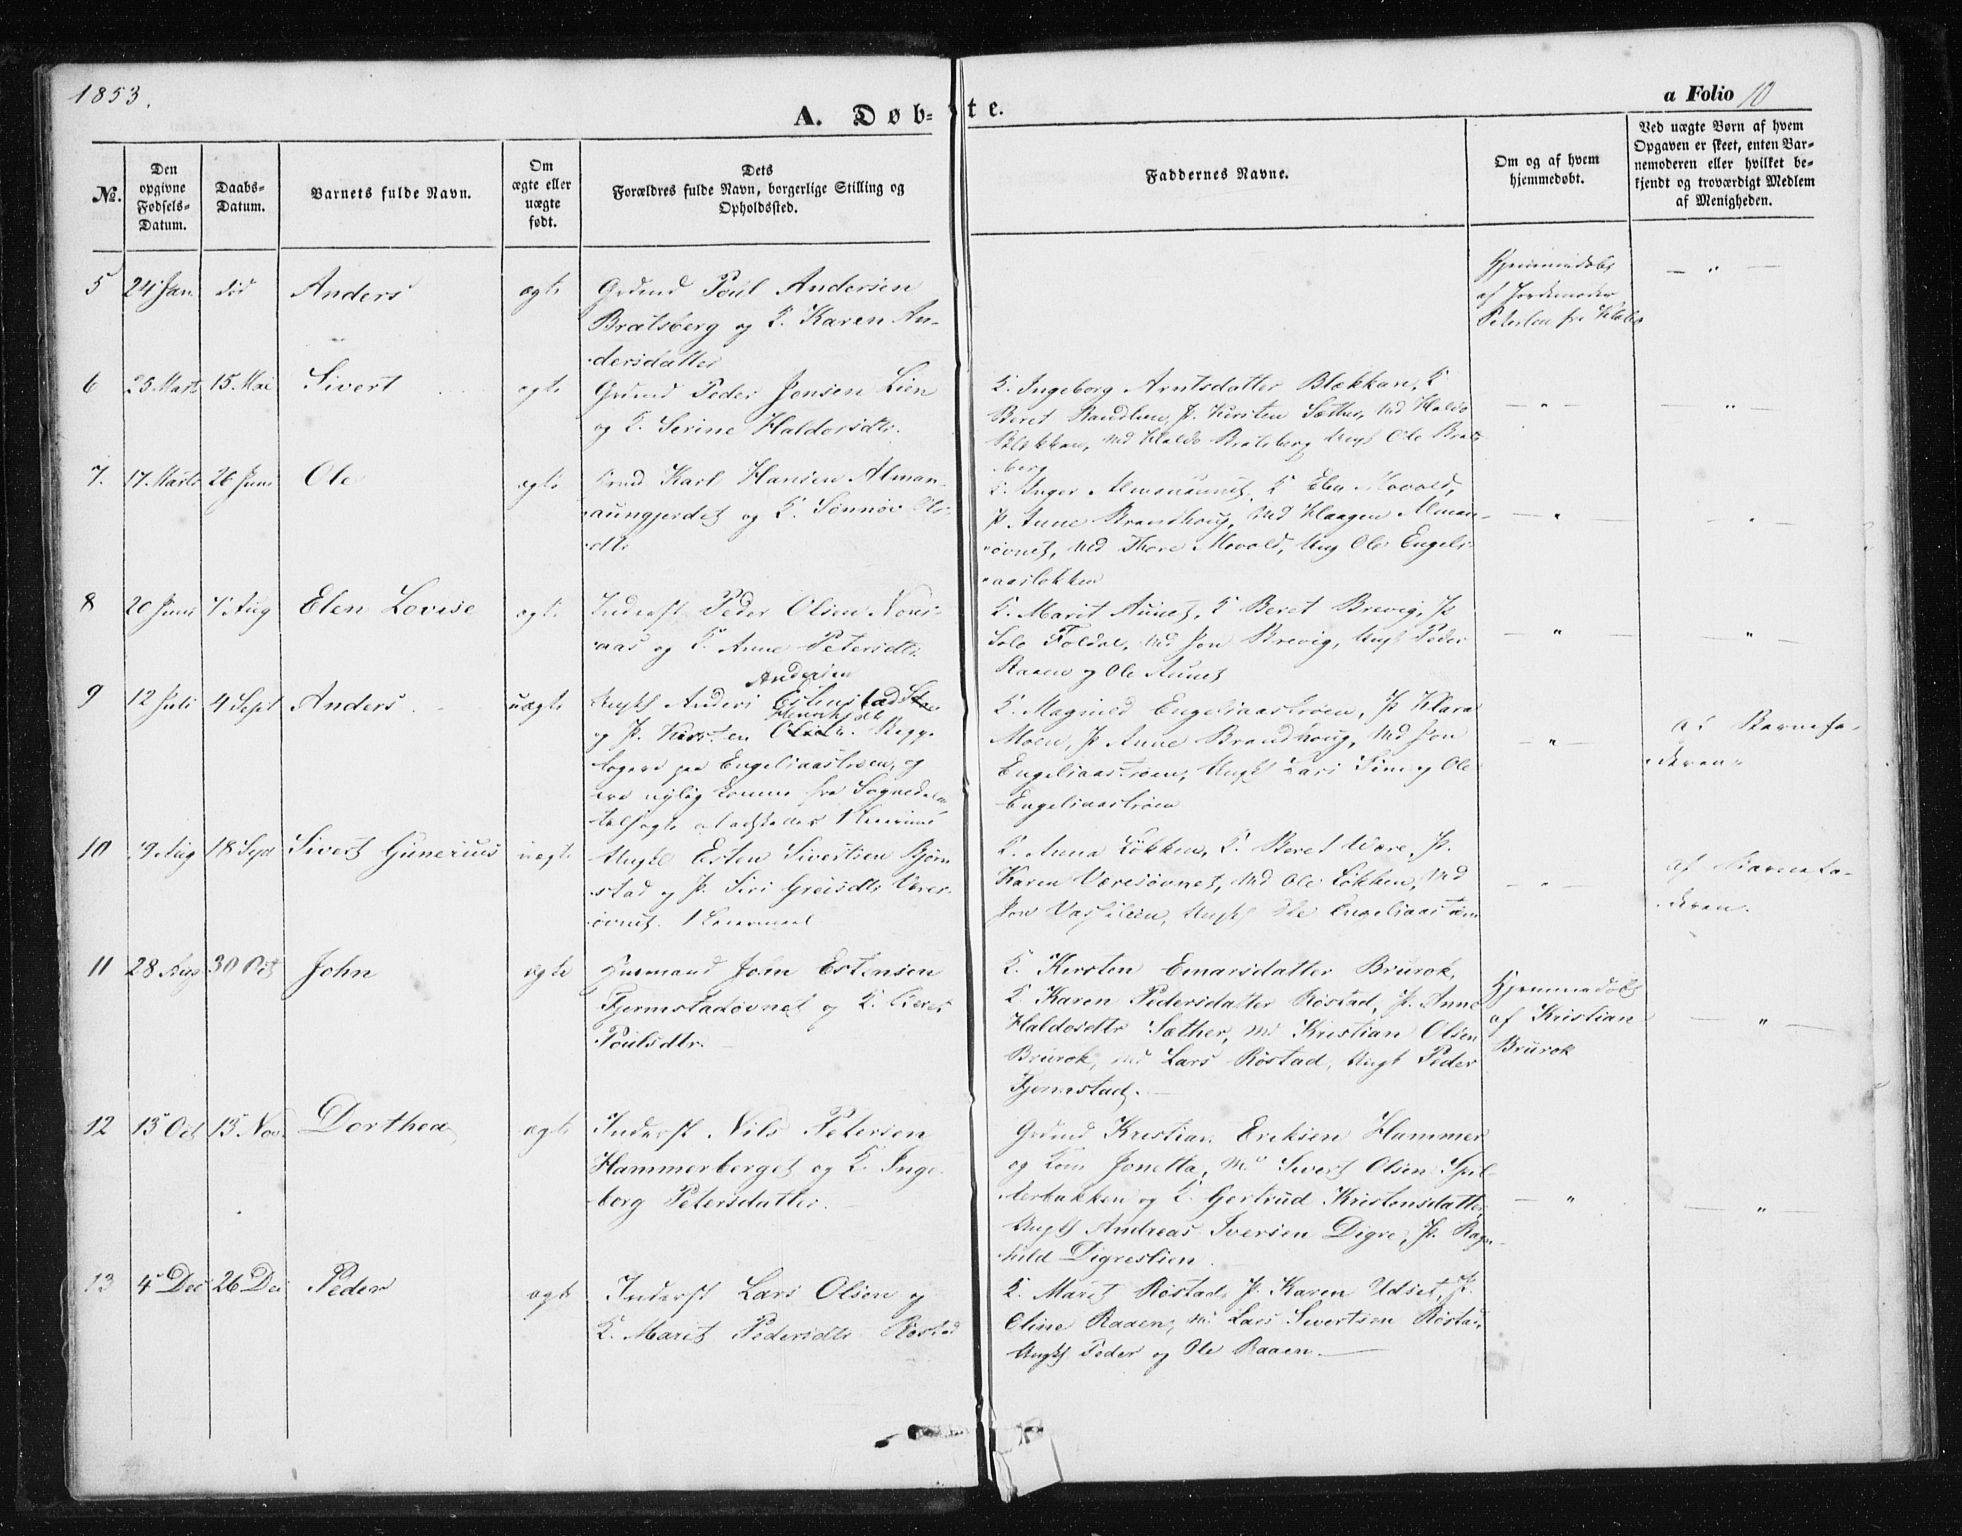 1853.
A. Døb-
te.
a Folio 10
№.
Den opgivne Fødsels-Datum.
Daabs-Datum.
Barnets fulde Navn.
Om ægte eller uægte født.
Dets Forældres fulde Navn, borgerlige Stilling og Opholdssted.
Faddernes Navne.
Om og af hvem hjemmedøbt.
Ved uægte Børn af hvem Opgaven er skeet, enten Barnemoderen eller hvilket bekjendt og troværdigt Medlem af Menigheden.
5 24 Jan. død Anders ægte
Grdmd Poul Andersen
Bratsberg og K. Karen An-
dersdatter
Hjemmedøbt
af Jordemoder
— " —
6 25 Marts 15. Mai Sivert ægte
Grdmd Peder Jonsen Lien
og K. Serine Haldorsdtr.
K. Ingeborg Arntsdatter Blækkan, K
Beret Randlin, P. Kirsten Sæther, Md Haldo
Blækkan, Md Haldo Bratsberg Ungk Ole Brats-
berg
— " —
— " —
7. 17. Marts 26 Juni Ole ægte
Karl Hansen Alman-
aungjerdet og K. Sønnøv Ols-
dtr.
K. Inger Almanaunet, K Elen Movold,
P. Anne Brandhoug, Md Haagen Alman-
øvnet, Md Thore Movold, Ung Ole Engels-
aasløkken
— " —
"
8 20 Juni 7 Aug Elen Lovise ægte
Inderst Peder Olsen Nons-
aas og K. Anne Petersdtr.
K. Marit Aunet, K Beret Brevig, P
Foldal, Md Jon Brevig, Ungk Peder
Raaen og Ole Aunet
— " —
"
9 12 Juli 4 Sept Anders uægte
Andersen
Ungkl Anders Estenstad
og P. Kirsten Begge
logere paa Engelsaastrøen, og
ere nylig komne fra Sognedalen
K. Magnild Engelsaastrøen, P Klara
Moen, P Anne Brandhoug, Md Jon
Engelsaastrøen, Ungk Lars og Ole
Engelsaastrøen
— " —
af Barnefa-
deren
10 9 Aug 18 Sept Sivert Gunerius uægte
Ungkl Esten Sivertsen Bjørn-
stad og P. Siri Greisdtr Veres-
øvnet. 1 Leiermaal
K. Anna Løkken, K. Beret Ware, P.
Karen Væresøvnet, Md Ole Løkken, Md
Jon Vasslien, Ungk Ole Engelsaastrøen
— " —
af Barnefa-
deren.
11 28 Aug 30 Oct John ægte
Husmand John Estensen
Fjermstadøvnet og K. Beret
Poulsdtr.
K. Kirsten Emarsdatter Brurok,
K. Karen Pedersdatter Røstad, P. Anne
Haldosdtr Sæther, Md Kristian Olsen
Brurok, Md Lars Røstad, Ungk Peder
Fjermstad.
Hjemmedøbt
af Kristian
Brurok
— " —
12 13 Oct 13 Nov. Dorthea ægte
Inderst Nils Petersen
Hammerberget og K. Inge-
borg Petersdatter.
Grdmd Kristian Eriksen Hammer
og Kone Jonetta, Md Sivert Olsen Spil-
derbakken og K. Gertrud Kristensdatter,
Ungk Andreas Iversen Digre, P. Ragn-
hild Digreslien.
— "
— " —
13 4 Dec 26 Dec Peder ægte
Inderst Lars Olsen og
K. Marit Pedersdtr Røstad
K. Marit Røstad, P. Karen Udset, P.
Oline Raaen, Md Lars Sivertsen Røstad,
Ungk Peder og Ole Raaen.